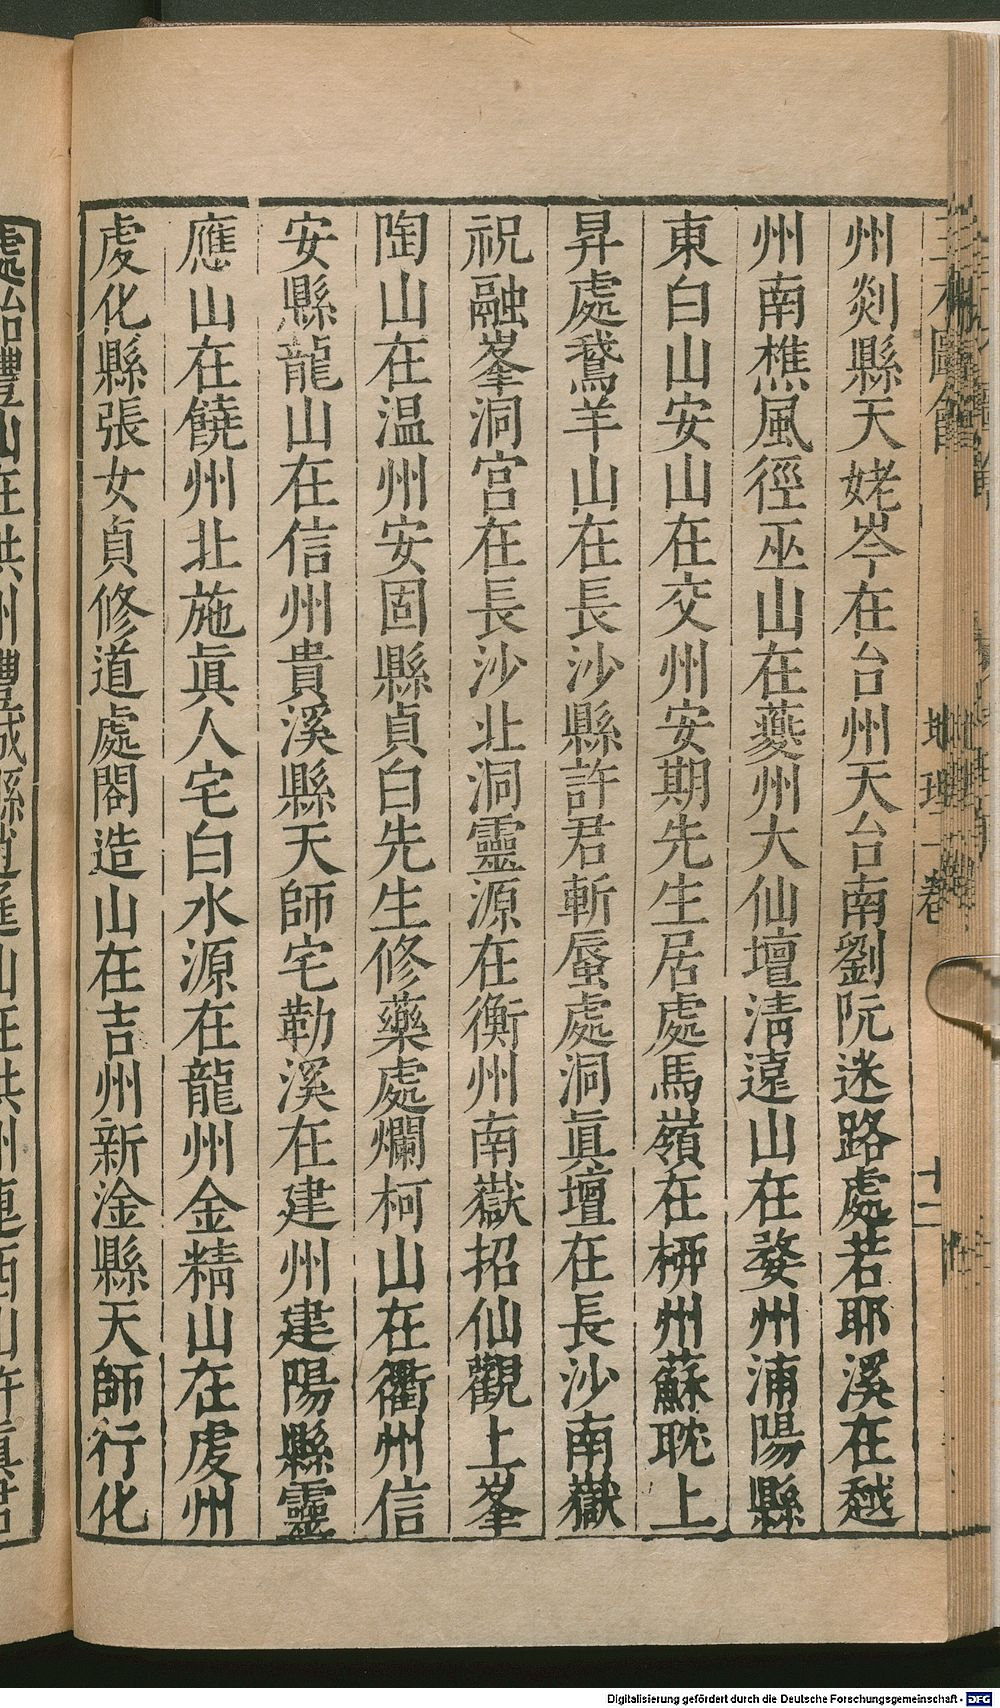 州剡縣天姥岑在台州天台南劉阮迷路處若耶溪在越
州南樵風徑巫山在夔州大仙壇清遠山在婺州浦陽縣
東白山安山在交州安期先生居處馬嶺在柳州蘇耽上
昇處鵞羊山在長沙縣許君斬蜃處洞眞壇在長沙南嶽
祝融峯洞宮在長沙北洞靈源在衡州南嶽招仙觀上峯
陶山在温州安固縣貞白先生修藥處爛柯山在衢州信
安縣龍山在信州貴溪縣天師宅勒溪在建州建陽縣靈
應山在饒州北施眞人宅白水源在龍州金精山在虔州
虔化縣張女貞修道處閤造山在吉州新淦縣天師行化
處始豐山在洪州豐城縣逍遙山在洪州連西山許眞君
三才圖會
地理十一卷
十二
Digitalisierung gefördert durch die Deutsche Forschungsgemeinschaft - DFG